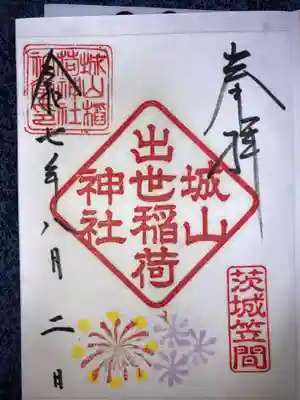 奉拝
城山
出世稲荷
神社
茨城笠間
城山稲
荷神社
神璽
令和七年八月二日